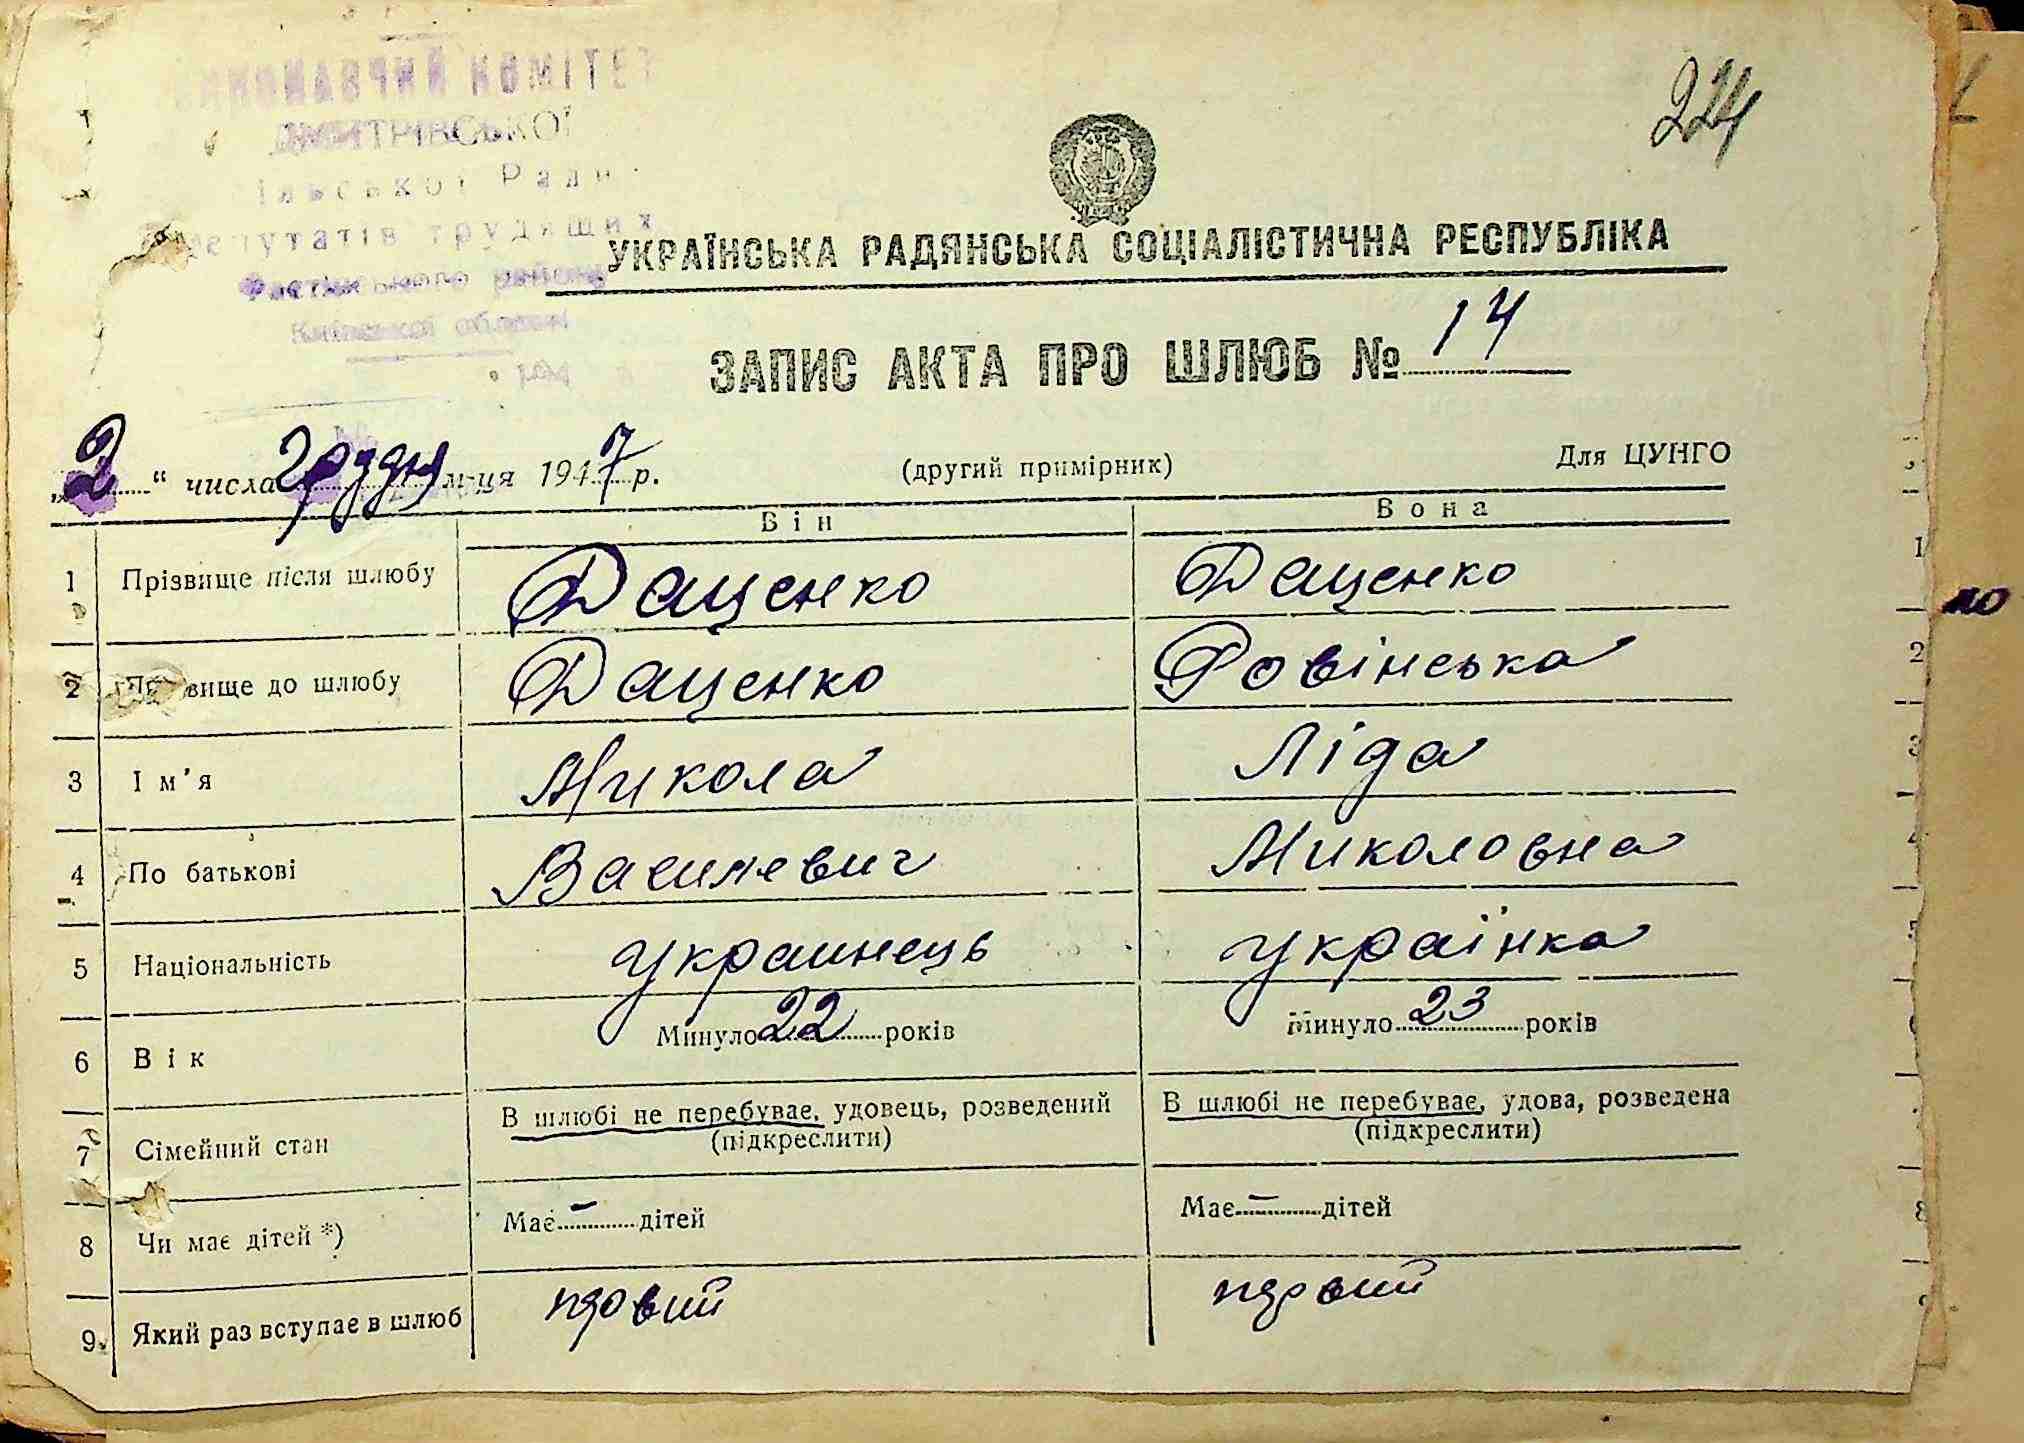 ВИКОНАВЧИЙ КОМІТЕТ
ДМИТРІВСЬКОЇ
сільської Ради
депутатів трудящих
Фастівського району
Київської області
224
УКРАЇНСЬКА РАДЯНСЬКА СОЦІАЛІСТИЧНА РЕСПУБЛІКА
ЗАПИС АКТА ПРО ШЛЮБ № 14
„2“ числа грудня м-ця 1947 р. (другий примірник) Для ЦУНГО
Він Вона
1 Прізвище після шлюбу Даценко Даценко 1
2 Прізвище до шлюбу Даценко Ровінська 2
3 Ім’я Микола Ліда 3
4 По батькові Василевич Миколовна
5 Національність украинець українка
6 Вік Минуло 22 років Минуло 23 років
7 Сімейний стан В шлюбі не перебуває, удовець, розведений В шлюбі не перебуває, удова, розведена
(підкреслити) (підкреслити)
8 Чи має дітей *) Має – дітей Має – дітей 8
9. Який раз вступає в шлюб первий первий